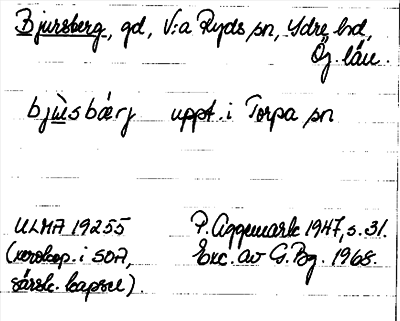 Bjursberg, gd, V:a Ryds sn, Ydre hd,
Ög. län.
bjùsbärj uppt. i Torpa sn
ULMA 19255 P. Aggemark 1947, s. 31.
(verskop. i SOA, Exc. av G. Bg. 1968.
särsk. kapsel).